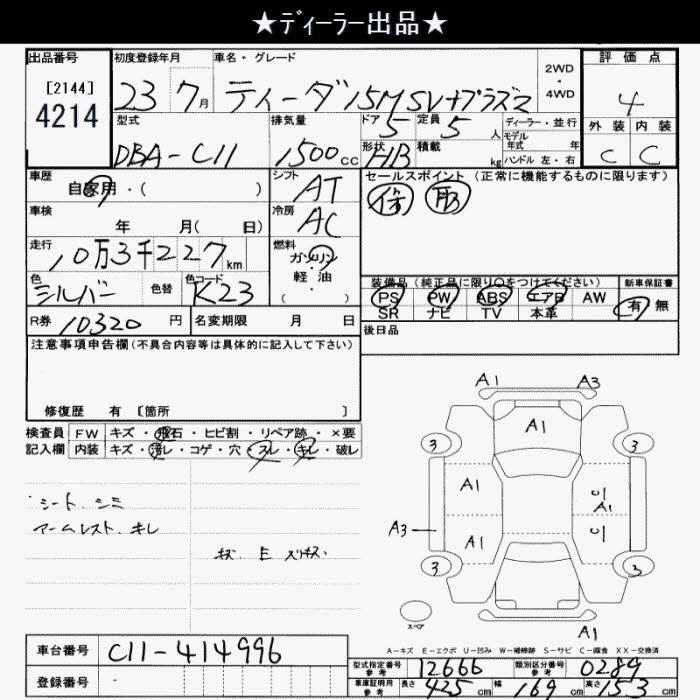 ★ディーラー出品★
出品番号 初度登録年月 車名・グレード 2WD・4WD 評価点
[2144]
4214
23 7月 ティーダ 15M SV+プラズマ 4
型式 排気量 ドア 定員 ディーラー・並行 外装 内装
DBA-C11 1500cc 5 5人 モデル年式 年 C C
形状 積載 kg ハンドル 左・右
H/B
車歴 シフト セールスポイント(正常に機能するものに限ります)
自家用・( ) AT 保 取
車検 冷房
年 月( 日) AC
走行 燃料
10万3千227km ガソリン・軽・油・
装備品(純正品に限り○をつけてください) 新車保証書
色 色替 色コード PS PW ABS エアB AW 有 無
シルバー K23 SR ナビ TV 本革
R券 10320円 名変期限 月 日 後日品
注意事項申告欄(不具合内容等は具体的に記入して下さい)
修復歴 有 [箇所 ]
検査員 FW キズ・飛石・ヒビ割・リペア跡・×要
記入欄 内装 キズ・汚レ・コゲ・穴・スレ・キレ・破レ
シート、シミ
アームレスト、キレ
キズ E
A1 A3
A1
3 3
A1 C
A1
A3 A1 C
3 3
スペア
A1
A-キズ E-エクボ U-凹み W-補修跡 S-サビ C-腐食 XX-交換済
車台番号 C11-414996
登録番号
型式指定番号 参考 12666 類別区分番号 参考 0289
車庫証明用 参考 長さ 425cm 幅 169cm 高さ 153cm